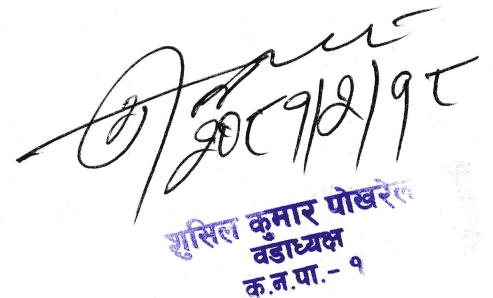 २०८१/२/१८
शुसिल कुमार पोखरेल
वडाध्यक्ष
क.न.पा.- १